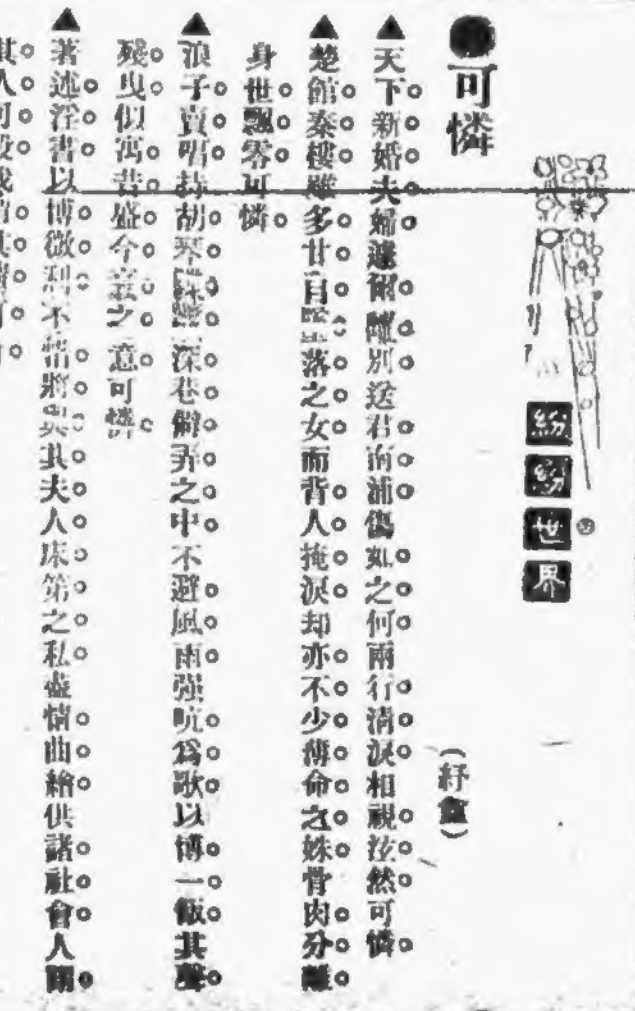 紛紛世界
可憐
(紓盦)
▲天下新婚夫婦遽爾離別送君南浦傷如之何兩行清淚相視泫然可憐
▲楚館秦樓雖多甘自墮落之女而背人掩淚却亦不少薄命之姝骨肉分離
身世飄零可憐
▲浪子賣唱持胡琴 深巷僻弄之中不避風雨强吭爲歌以博一飯其聲
殘曳似寓昔盛今衰之意可憐
▲著述淫書以博微利不惜將與其夫人床第之私盡情曲繪供諸社會人開
其人何